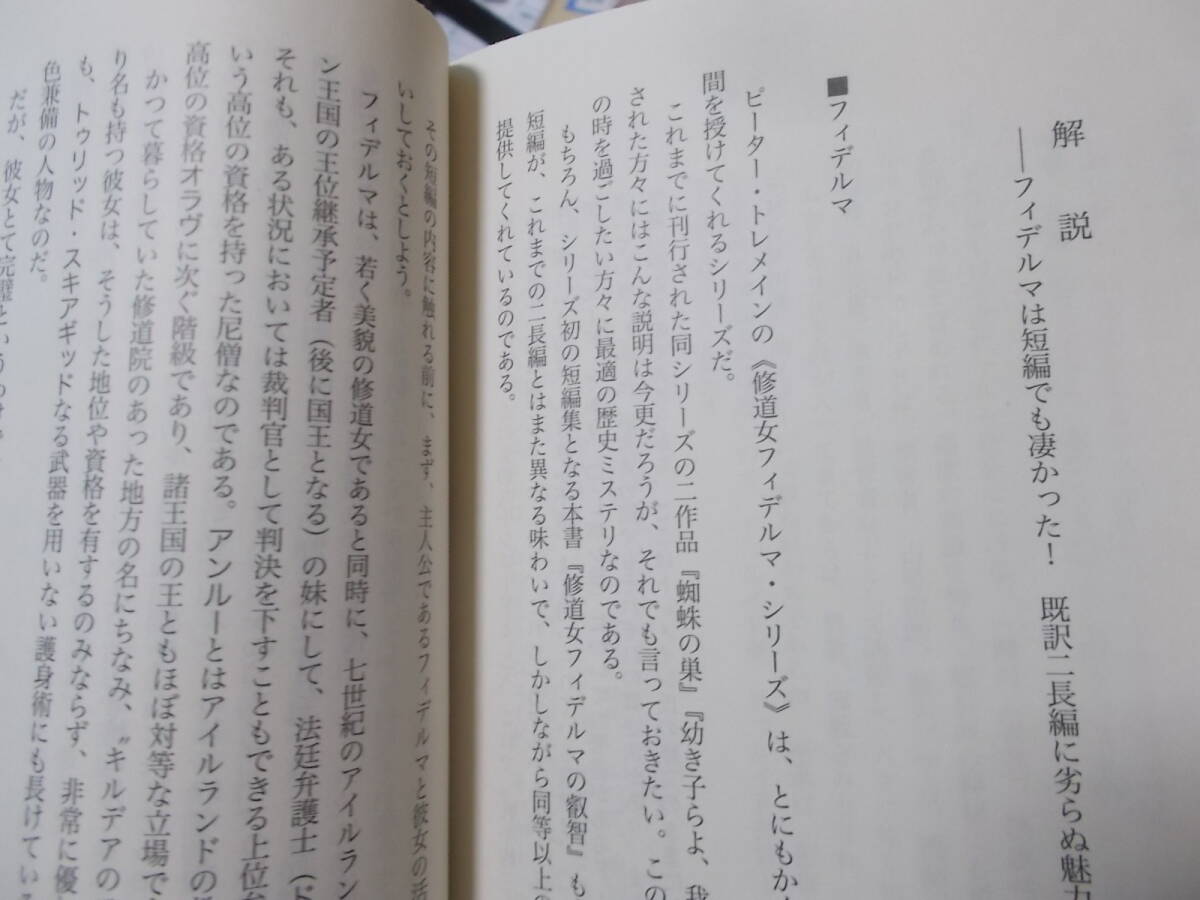 解説
――フィデルマは短編でも凄かった！　既訳二長編に劣らぬ魅力
■フィデルマ
ピーター・トレメインの《修道女フィデルマ・シリーズ》は、とにもか
間を授けてくれるシリーズだ。
これまでに刊行された同シリーズの二作品『蜘蛛の巣』『幼き子らよ、我
された方々にはこんな説明は今更だろうが、それでも言っておきたい。この
の時を過ごしたい方々に最適の歴史ミステリなのである。
もちろん、シリーズ初の短編集となる本書『修道女フィデルマの叡智』も
短編が、これまでの二長編とはまた異なる味わいで、しかしながら同等以上の
提供してくれているのである。
その短編の内容に触れる前に、まず、主人公であるフィデルマと彼女の活
いしておくとしよう。
フィデルマは、若く美貌の修道女であると同時に、七世紀のアイルラン
ン王国の王位継承予定者（後に国王となる）の妹にして、法廷弁護士（ド
それも、ある状況においては裁判官として判決を下すこともできる上位弁
いう高位の資格を持った尼僧なのである。アンルーとはアイルランドの
高位の資格オラヴに次ぐ階級であり、諸王国の王ともほぼ対等な立場で
かつて暮らしていた修道院のあった地方の名にちなみ、〝キルデアの
り名も持つ彼女は、そうした地位や資格を有するのみならず、非常に優
も、トゥリッド・スキアギッドなる武器を用いない護身術にも長けている
色兼備の人物なのだ。
だが、彼女とて完璧というわけ